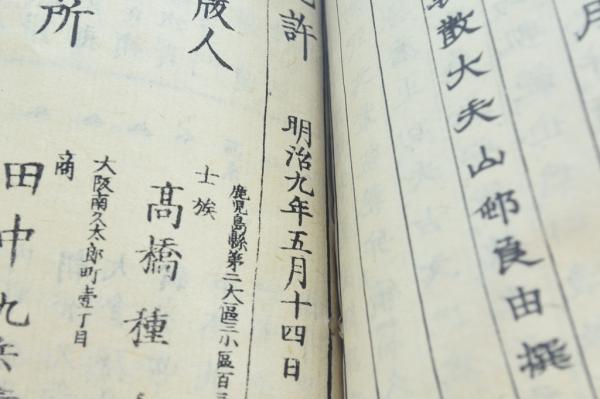 散大夫山邨良由撰
免許 明治九年五月十四日
鹿児島縣第二大區三小區百
士族
高橋種
人
大阪南久太郎町壹丁目
商
田中九兵
所